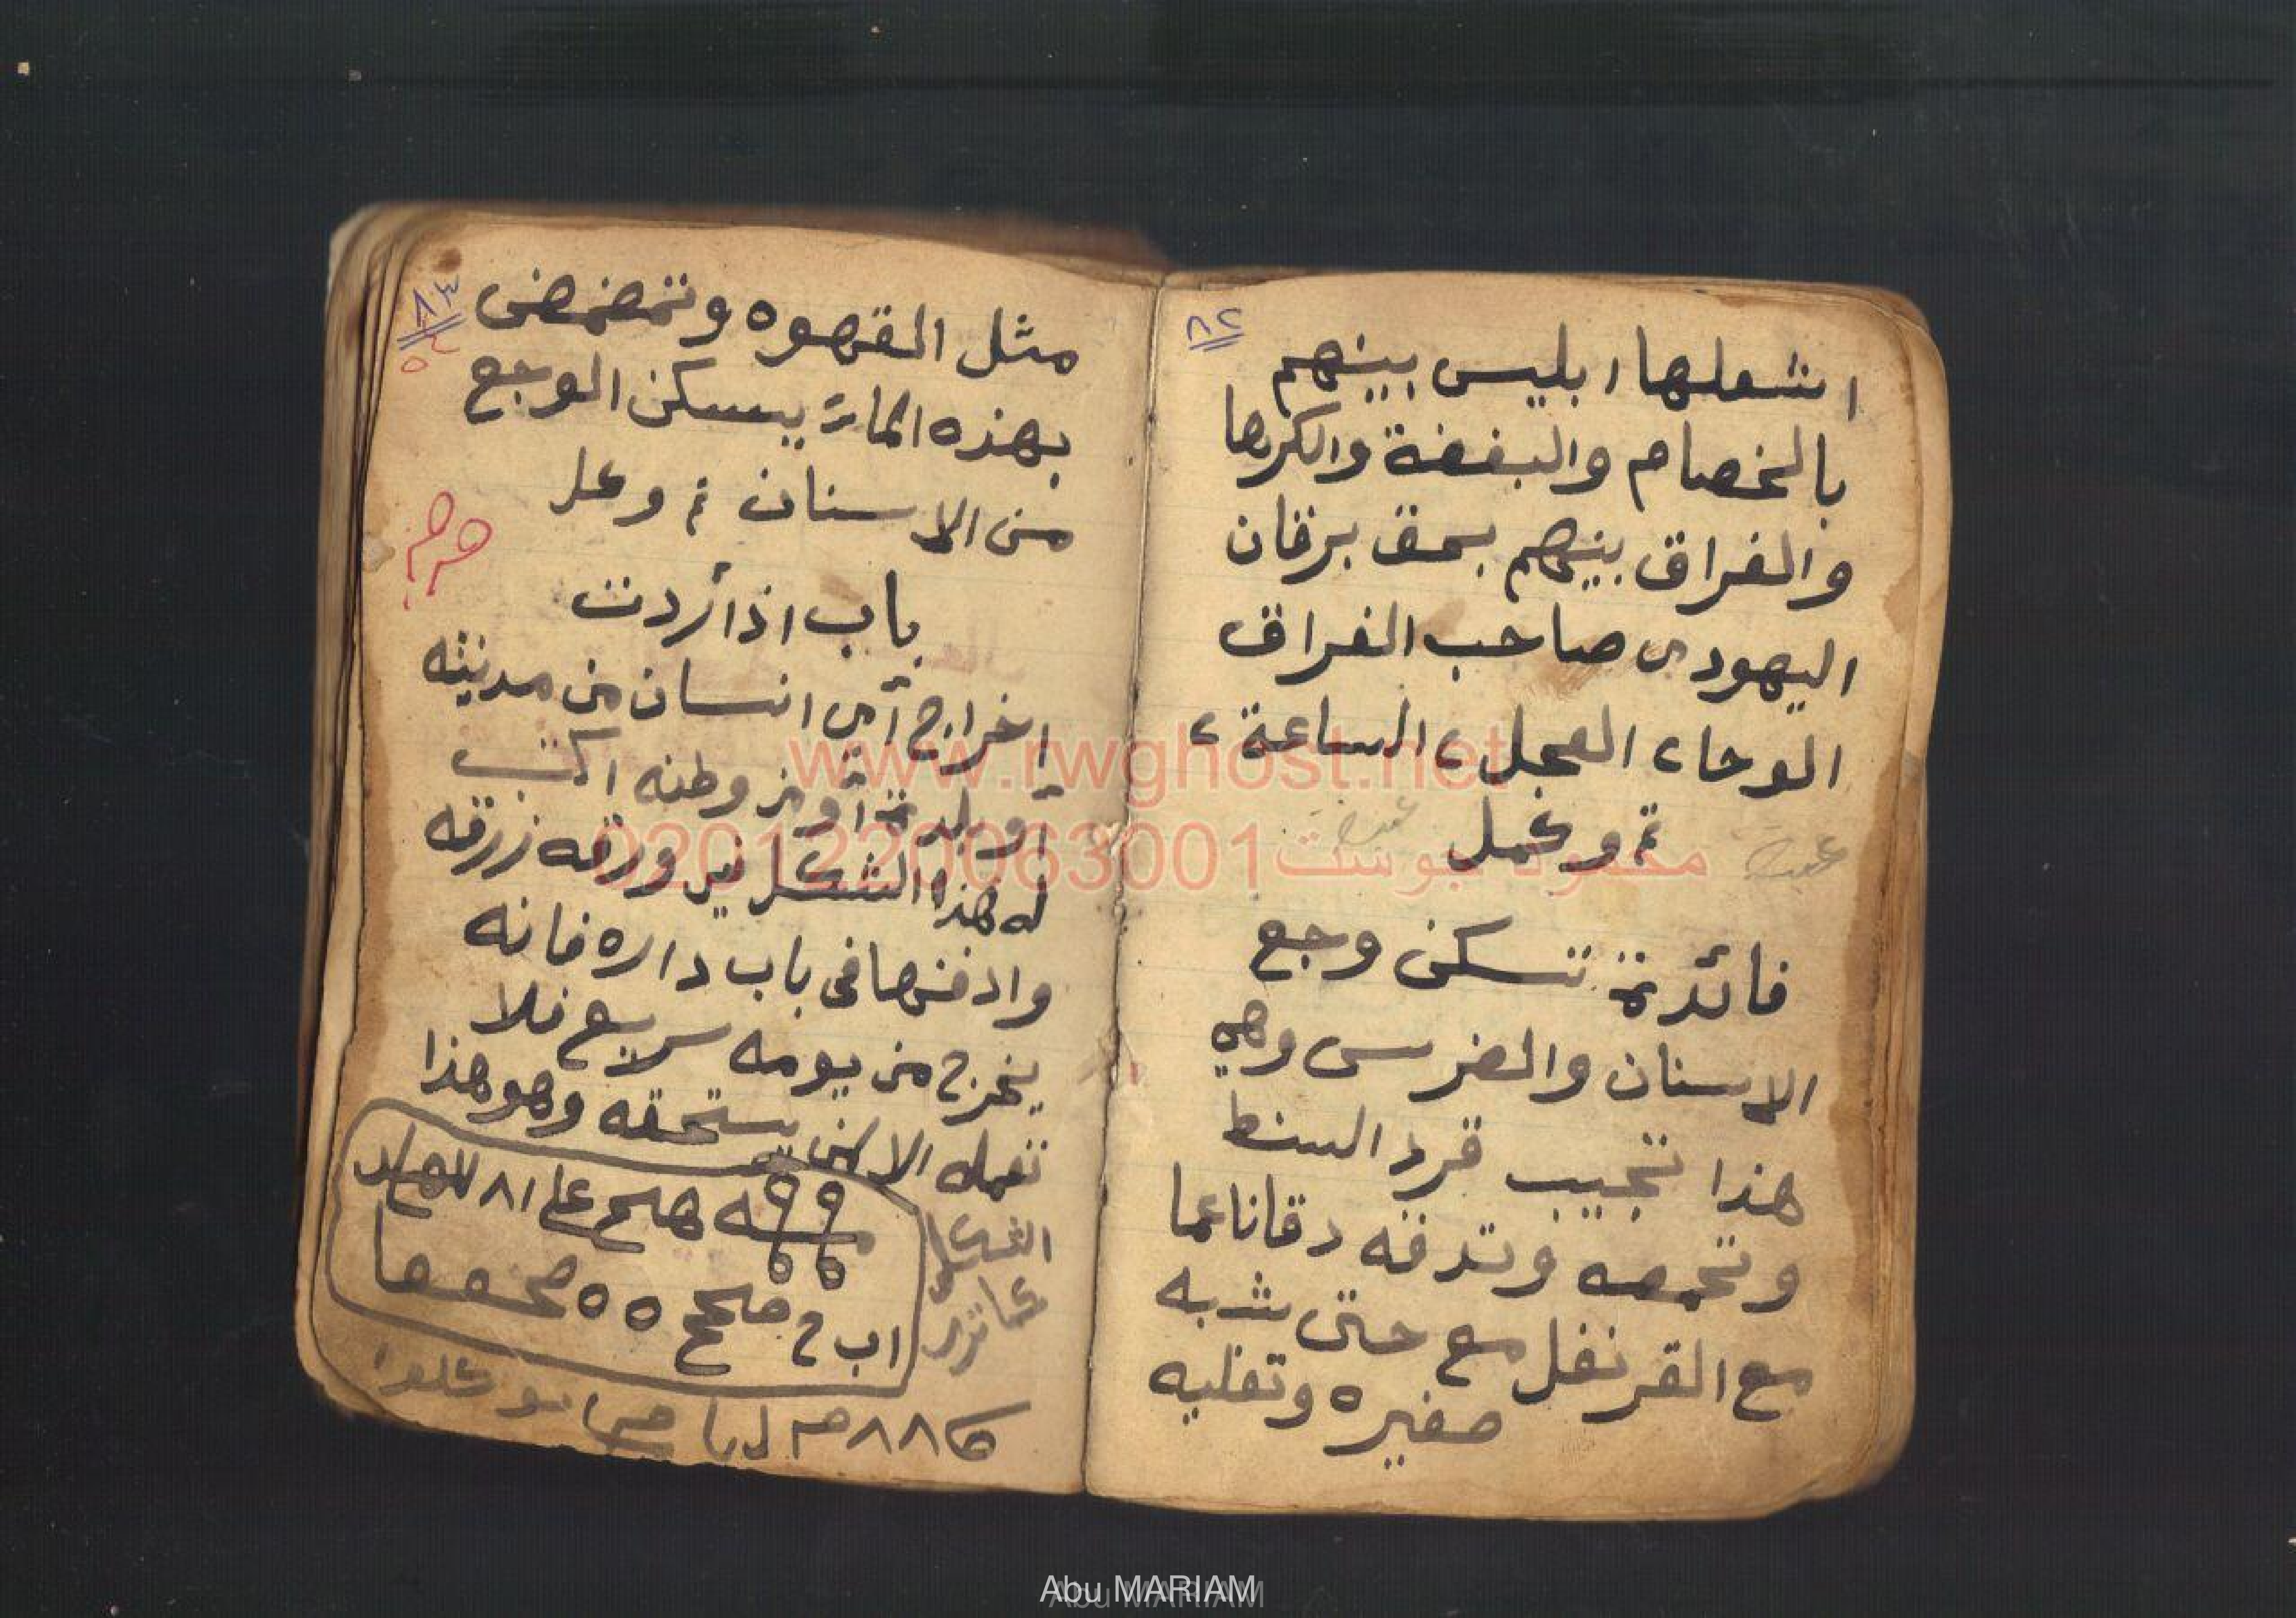 ٨٢
اشعلها ابليس بينهم
بالخصام والبغضة والكرها
والفراق بينهم بحق برقان
اليهودى صاحب الفراق
الوحا٢ العجل٢ الساعة ٢
تم وعمل
فائدة تسكن وجع
الاسنان والضرس وهي
هذا تجيب قرد السنط
وتحمصه وتدقه دقاناعما
مع القرنفل مع حتى شبه
صغيره وتغليه
٨٣
مثل القهوه وتتمضمض
بهذه الماء يسكن الوجع
من الاسنان تم وعلـ
باب اذا أردت
اخراج أى انسان من مدينته
أو بلدة أو من وطنه اكتب
له هذا الشكل في ورقه زرقه
وادفنها فى باب داره فانه
يخرج من يومه سريع فلا
تعمله الا لمن يستحقه وهو هذا
الشكل
كما ترى
www.rwghost.net
محمود جوست 0201220063001
Abu MARIAM